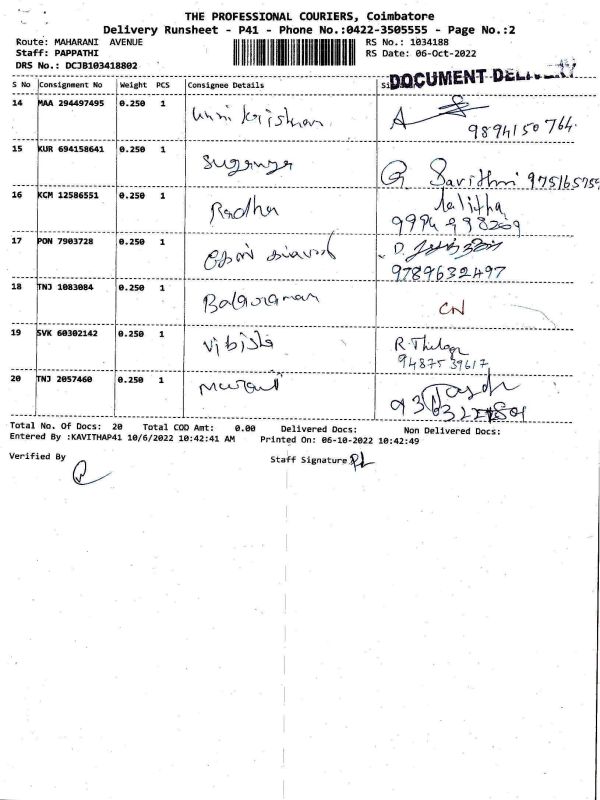 THE PROFESSIONAL COURIERS, Coimbatore
Delivery Runsheet - P41 - Phone No.:0422-3505555 - Page No.:2
Route: MAHARANI AVENUE RS No.: 1034188
Staff: PAPPATHI RS Date: 06-Oct-2022
DRS No.: DCJB103418802
DOCUMENT DELIVERY
S No Consignment No Weight PCS Consignee Details
14 MAA 294497495 0.250 1 Unni Krishnan
9894150764
15 KUR 694158641 0.250 1 Suganya Savithri 975165759
16 KCM 12586551 0.250 1 Radha Lalitha
9994998209
17 PON 7903728 0.250 1
9789632497
18 TNJ 1083084 0.250 1 Balaraman CN
19 SVK 60302142 0.250 1 Vibisha R. Thilaga
9487539617
20 TNJ 2057460 0.250 1 Murali
Total No. Of Docs: 20 Total COD Amt: 0.00 Delivered Docs: Non Delivered Docs:
Entered By :KAVITHAP41 10/6/2022 10:42:41 AM Printed On: 06-10-2022 10:42:49
Verified By Staff Signature PL